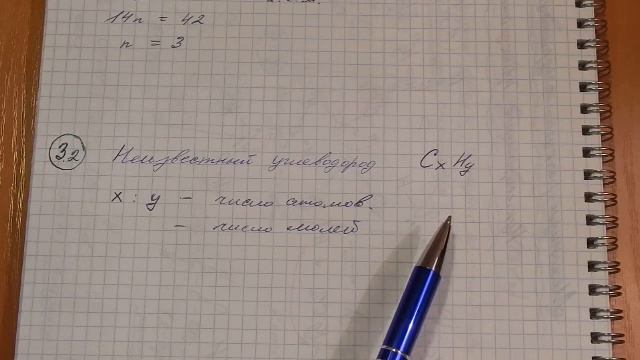 14n = 42
n = 3
3.2 Неизвестный углеводород CxHy
x : y - число атомов.
- число молей